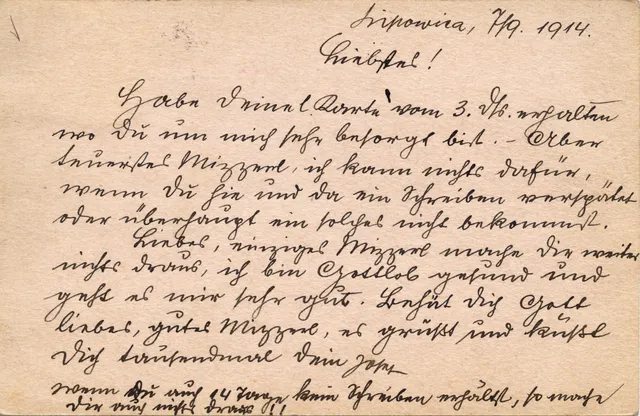 Lupowica, 7/9. 1914.
Liebstes!
Habe deine l. Karte vom 3. ds. erhalten
wo Du um mich sehr besorgt bist. – Aber
teuerstes Mizzerl, ich kann nichts dafür,
wenn Du hie und da ein Schreiben verspätet
oder überhaupt ein solches nicht bekommst.
Liebes, einziges Mizzerl mache Dir weiter
nichts draus, ich bin Gottlob gesund und
geht es mir sehr gut. Behüt Dich Gott
liebes, gutes Mizzerl, es grüßt und küßt
Dich tausendmal dein Josef
wenn Du auch 14 Tage kein Schreiben erhältst, so mache
Dir auch nichts draus!!